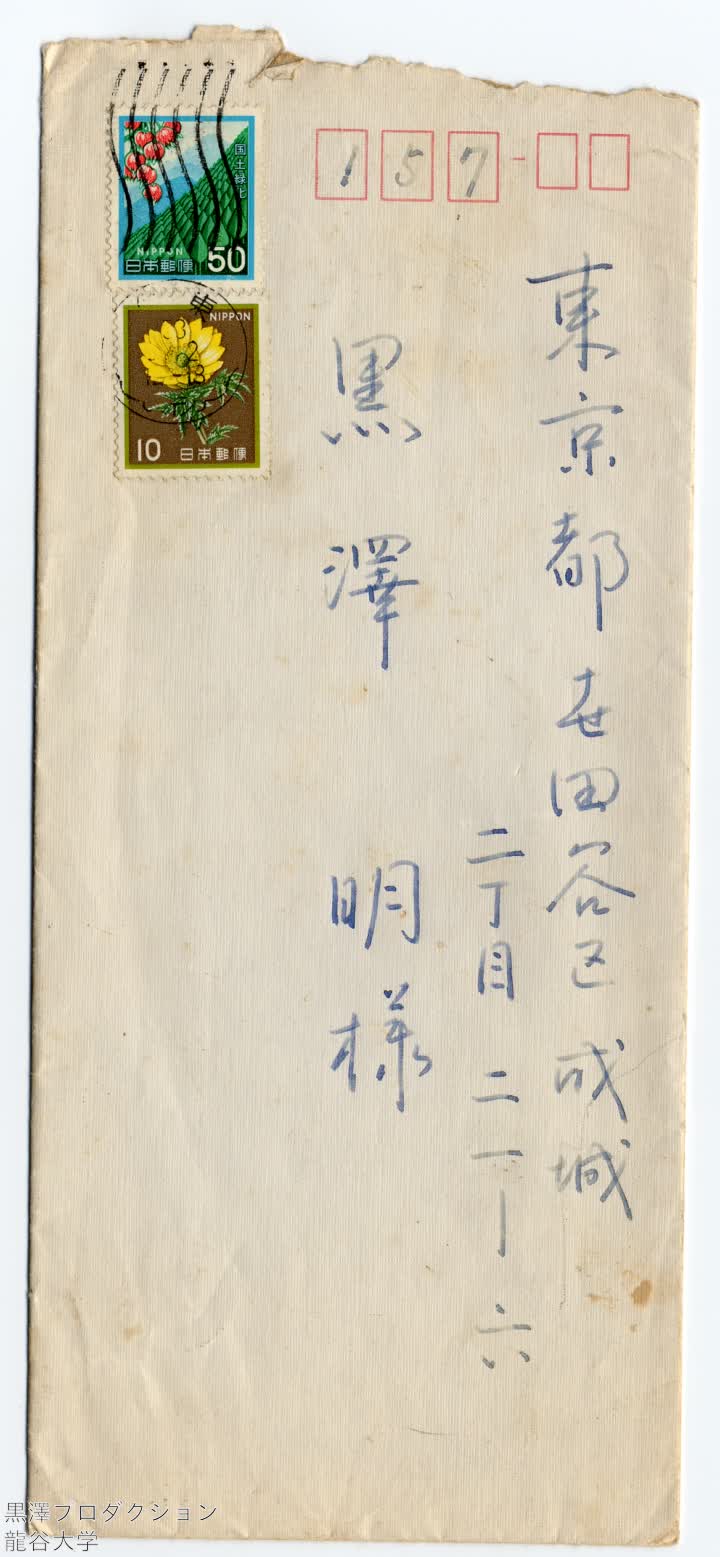 157
東京都世田谷区成城
二丁目二一ー六
黒澤明様
国土緑化
NIPPON
日本郵便 50
東
NIPPON
10 日本郵便
黒澤プロダクション
龍谷大学